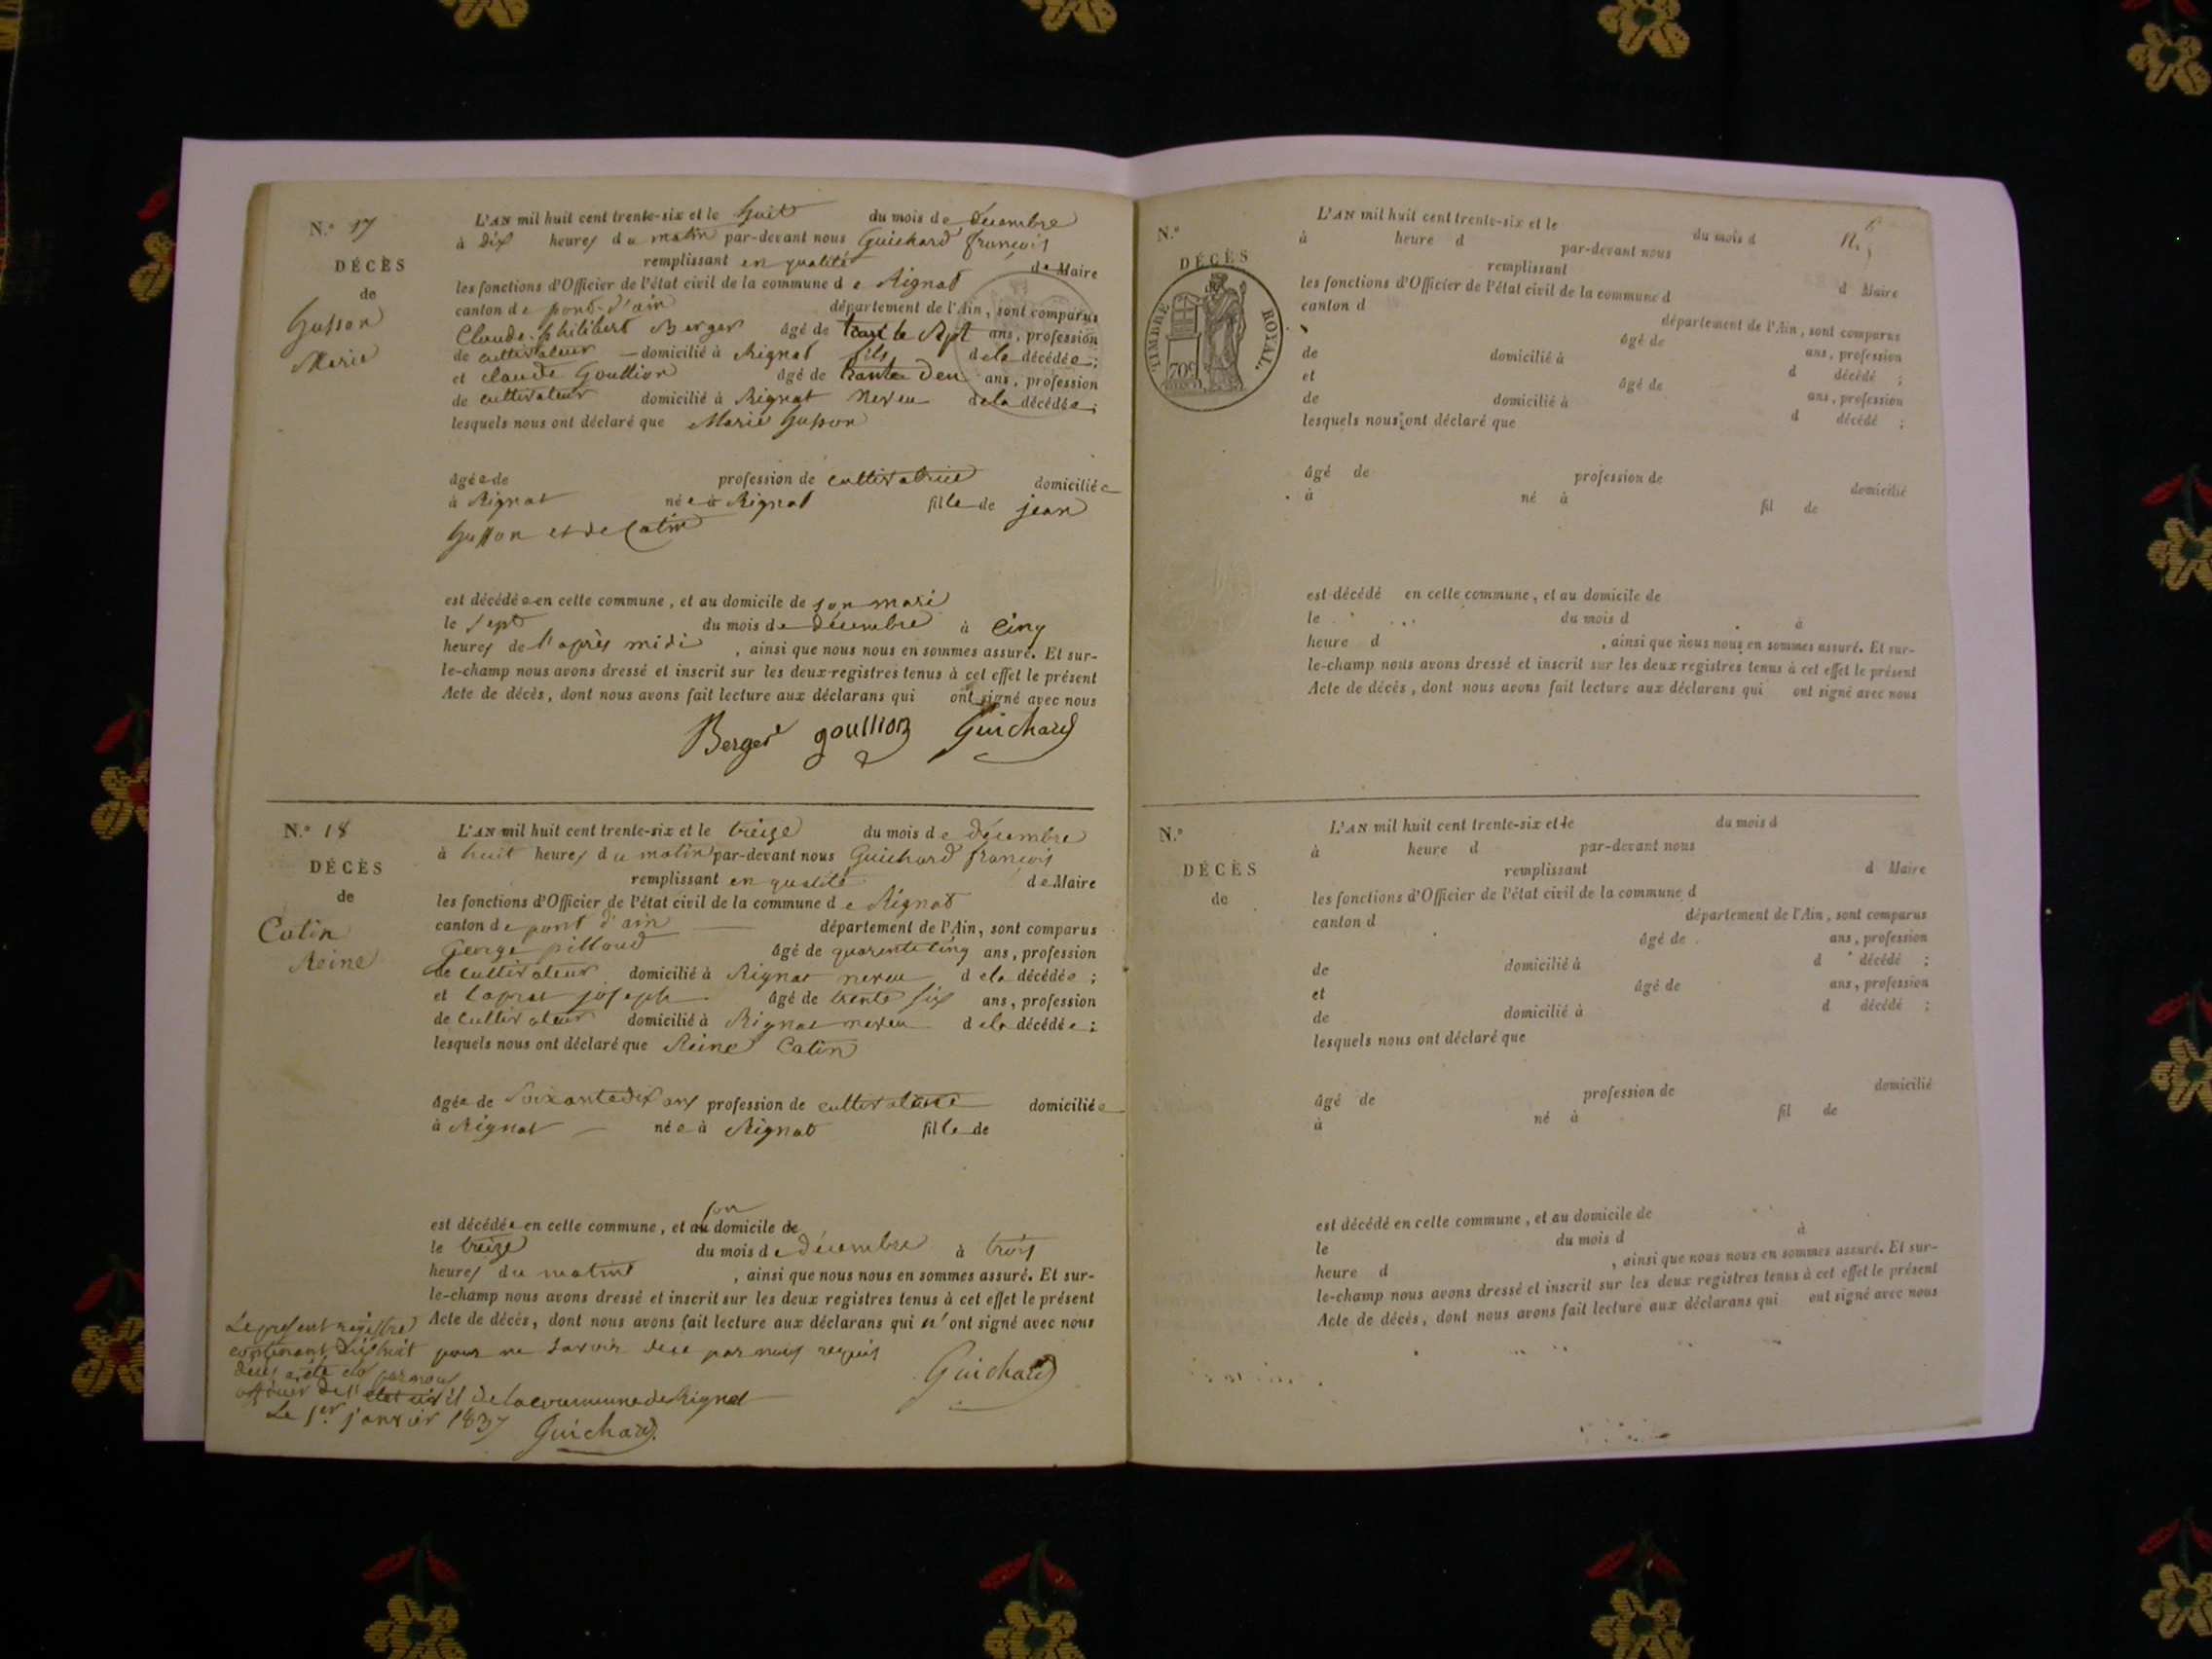 N.° 17
DÉCÈS
de
Husson
Marie
L'AN mil huit cent trente-six et le huit du mois de décembre
à dix heures du matin par-devant nous Guichard françois
remplissant en qualité de Maire
les fonctions d'Officier de l'état civil de la commune de Rignat
canton de pont-d'ain département de l'Ain, sont comparus
Claude-philibert Berger âgé de trente sept ans, profession
de cultivateur domicilié à Rignat fils de la décédée ;
et claude Goullion âgé de trante deux ans, profession
de cultivateur domicilié à Rignat neveu de la décédée ;
lesquels nous ont déclaré que Marie husson
âgée de profession de cultivatrice domiciliée
à Rignat née à Rignat fille de jean
husson et de Catin
est décédée en cette commune, et au domicile de son mari
le sept du mois de décembre à cinq
heures de l'après midi , ainsi que nous nous en sommes assuré. Et sur-
le-champ nous avons dressé et inscrit sur les deux registres tenus à cet effet le présent
Acte de décès, dont nous avons fait lecture aux déclarans qui ont signé avec nous
Berger goullion Guichard
N.° 18
DÉCÈS
de
Catin
Reine
L'AN mil huit cent trente-six et le treize du mois de décembre
à huit heures du matin par-devant nous Guichard françois
remplissant en qualité de Maire
les fonctions d'Officier de l'état civil de la commune de Rignat
canton de pont d'ain département de l'Ain, sont comparus
George pilloud âgé de quarente cinq ans, profession
de cultivateur domicilié à Rignat neveu de la décédée ;
et joseph âgé de trente six ans, profession
de cultivateur domicilié à Rignat neveu de la décédée ;
lesquels nous ont déclaré que Reine Catin
âgée de soixante dix ans profession de cultivatrice domiciliée
à Rignat née à Rignat fille de
son
est décédée en cette commune, et au domicile de
le treize du mois de décembre à trois
heures du matin , ainsi que nous nous en sommes assuré. Et sur-
le-champ nous avons dressé et inscrit sur les deux registres tenus à cet effet le présent
Acte de décès, dont nous avons fait lecture aux déclarans qui n'ont signé avec nous
pour ne savoir de ce par nous requis
Guichard
Le présent registre
contenant dix huit
décès a été clo par nous
officier de l'état civil de la commune de Rignat
Le 1er janvier 1837 Guichard
N.°
DÉCÈS
de
TIMBRE ROYAL.
70c
L'AN mil huit cent trente-six et le du mois d
à heure d par-devant nous
remplissant d Maire
les fonctions d'Officier de l'état civil de la commune d
canton d département de l'Ain, sont comparus
âgé de ans, profession
de domicilié à d décédé ;
et âgé de ans, profession
de domicilié à d décédé ;
lesquels nous ont déclaré que
âgé de profession de domicilié
à né à fil de
est décédé en cette commune, et au domicile de
le du mois d à
heure d , ainsi que nous nous en sommes assuré. Et sur-
le-champ nous avons dressé et inscrit sur les deux registres tenus à cet effet le présent
Acte de décès, dont nous avons fait lecture aux déclarans qui ont signé avec nous
N.°
DÉCÈS
de
L'AN mil huit cent trente-six et le du mois d
à heure d par-devant nous
remplissant d Maire
les fonctions d'Officier de l'état civil de la commune d
canton d département de l'Ain, sont comparus
âgé de ans, profession
de domicilié à d décédé ;
et âgé de ans, profession
de domicilié à d décédé ;
lesquels nous ont déclaré que
âgé de profession de domicilié
à né à fil de
est décédé en cette commune, et au domicile de
le du mois d à
heure d , ainsi que nous nous en sommes assuré. Et sur-
le-champ nous avons dressé et inscrit sur les deux registres tenus à cet effet le présent
Acte de décès, dont nous avons fait lecture aux déclarans qui ont signé avec nous